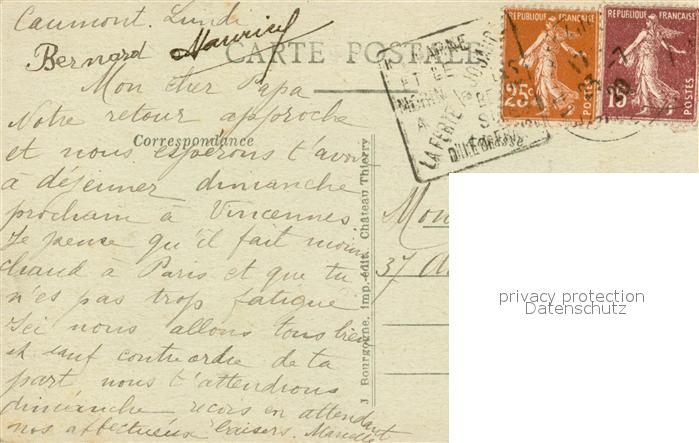 Caumont. Lundi
Bernard Maurice
CARTE POSTALE
Mon cher Papa
Notre retour approche
Correspondance
et nous espérons t'avoir
a déjeuner dimanche
prochain à Vincennes
Je pense qu'il fait moins
chaud à Paris et que tu
n'es pas trop fatigué
Ici nous allons tous bien
et sauf contre ordre de ta
part nous t'attendrons
dimanche reçois en attendant
nos affectueux baisers. Marcelle
J. Bourgogne, imp.-édit. Château Thierry
REPUBLIQUE FRANÇAISE
25c
REPUBLIQUE FRANÇAISE
15c
POSTES
LA FERTE S JOUARRE
Mon
37
privacy protection
Datenschutz